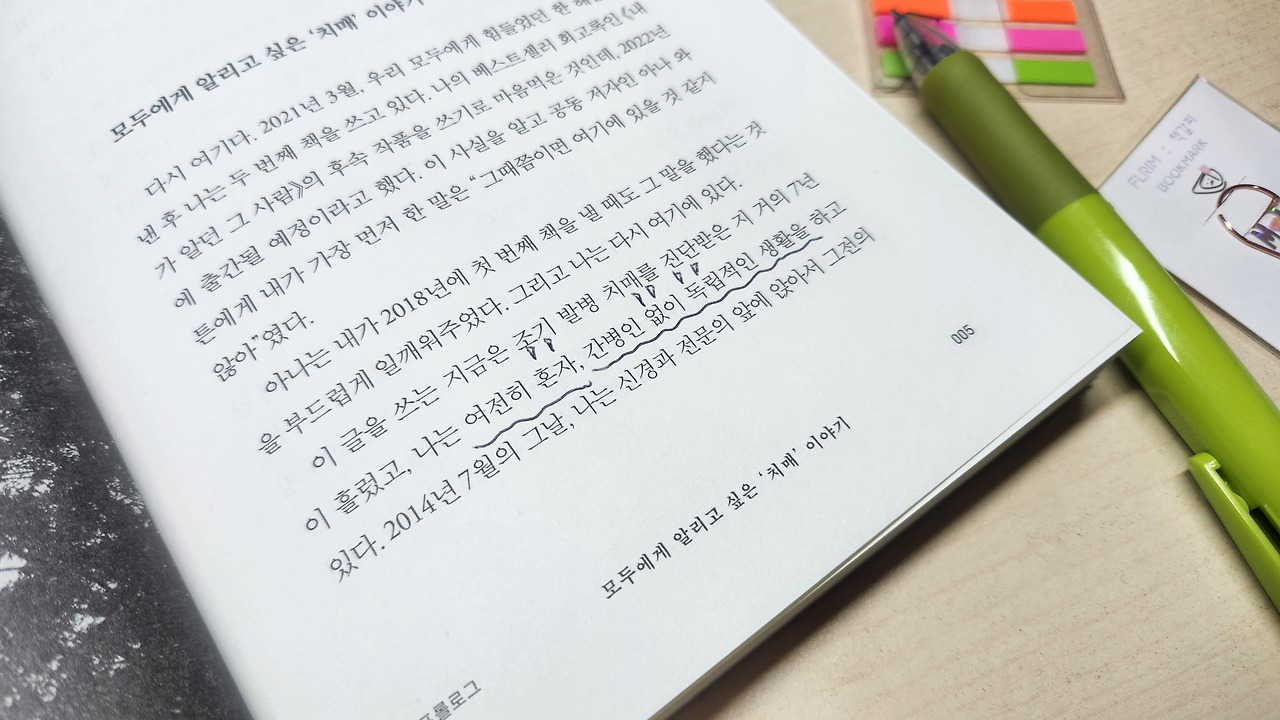 모두에게 알리고 싶은 ‘치매’ 이야기
다시 여기다. 2021년 3월, 우리 모두에게 힘들었던 한 해를
낸 후 나는 두 번째 책을 쓰고 있다. 나의 베스트셀러 회고록인 《내
가 알던 그 사람》의 후속 작품을 쓰기로 마음먹은 것인데, 2022년
에 출간될 예정이라고 했다. 이 사실을 알고 공동 저자인 아나 와
튼에게 내가 가장 먼저 한 말은 “그때쯤이면 여기에 있을 것 같지
않아”였다.
아나는 내가 2018년에 첫 번째 책을 낼 때도 그 말을 했다는 것
을 부드럽게 일깨워주었다. 그리고 나는 다시 여기에 있다.
이 글을 쓰는 지금은 조기 발병 치매를 진단받은 지 거의 7년
이 흘렀고, 나는 여전히 혼자, 간병인 없이 독립적인 생활을 하고
있다. 2014년 7월의 그날, 나는 신경과 전문의 앞에 앉아서 그전의
005
모두에게 알리고 싶은 ‘치매’ 이야기
프롤로그
FLRIM : 책갈피
BOOKMARK